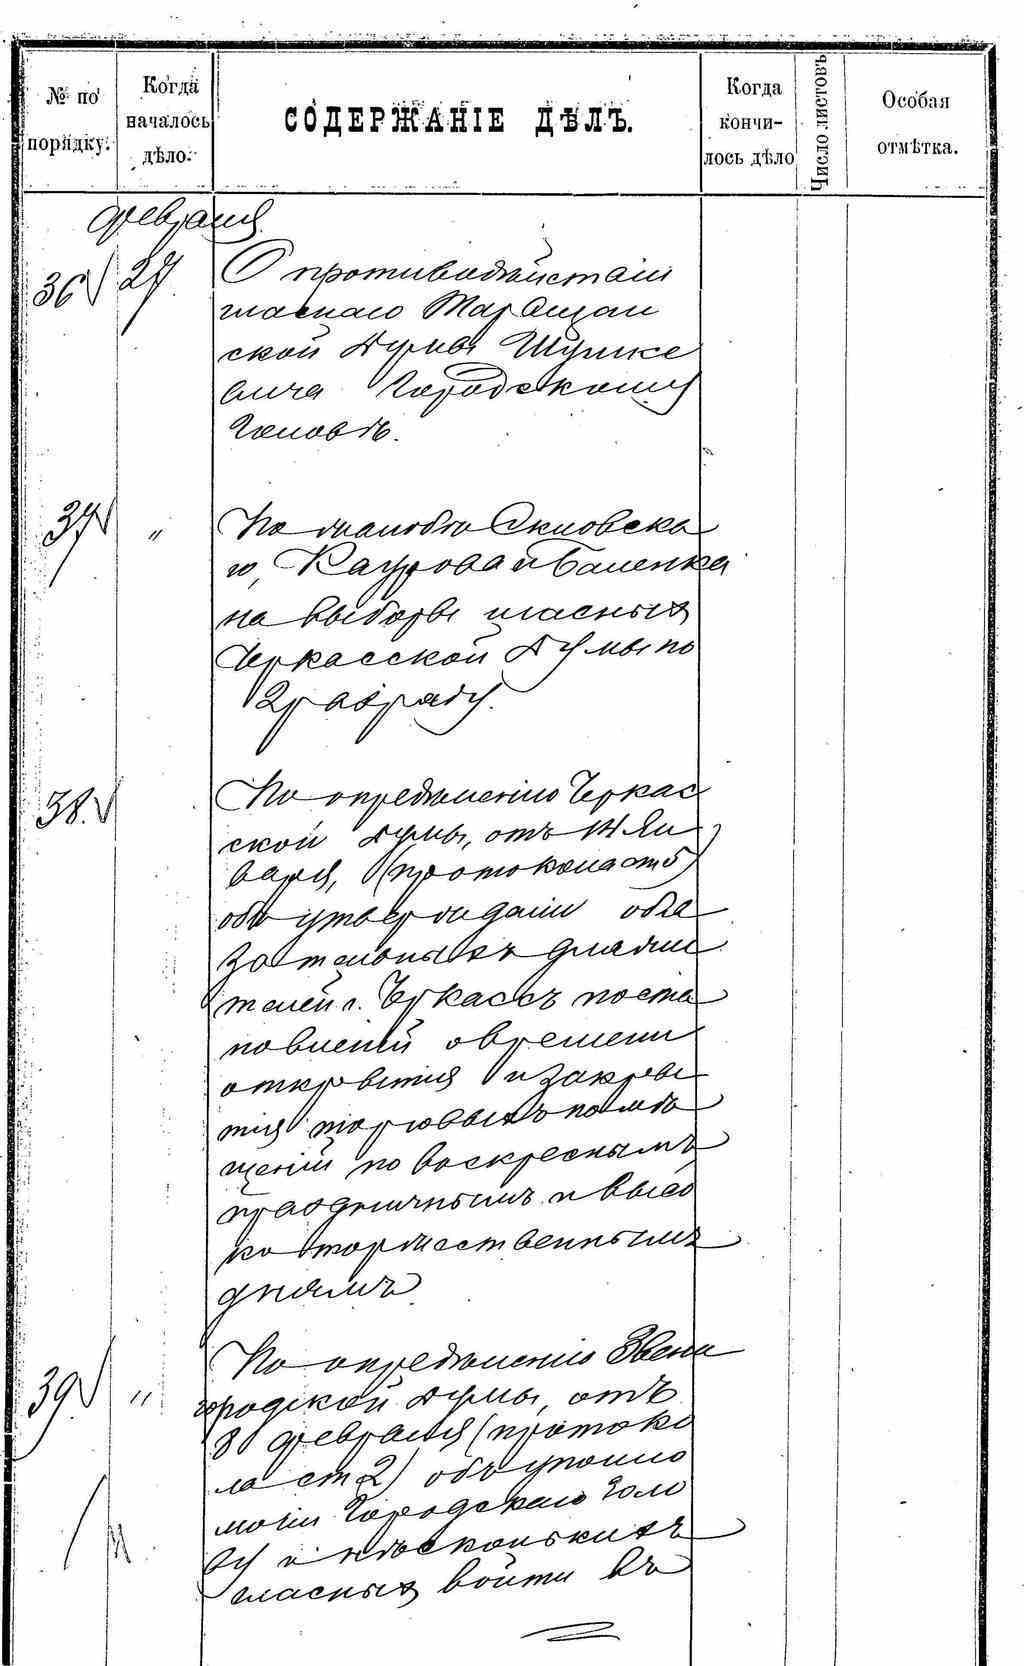 № по порядку.
Когда началось дѣло.
СОДЕРЖАНІЕ ДѢЛЪ.
Когда кончи-
лось дѣло
Число листовъ
Особая отмѣтка.
февраля
36 27 О противодѣйствіи
гласнаго Таращан
ской Думы Шумке
вича Городскому
Головѣ.
37 " По жалобѣ
го, Каурова и Баленка
на выборы гласныхъ
Черкасской Думы по
2 разряду.
38. По опредѣленію Черкас
ской Думы, отъ 14 Ян
варя, (протокола ст 5)
объ утвержданіи обя
зательныхъ для жи
телей г. Черкассъ поста
новленій о времени
открытія и закры
тія торговыхъ помѣ
щеній по воскреснымъ
праздничнымъ и высо
ко торжественнымъ
днямъ
39 " По опредѣленію Звени
городской Думы, отъ
8 февраля (протоко
ла ст 2) объ уполно
мочіи Городскаго Голо
ву и нѣсколькихъ
гласныхъ войти въ